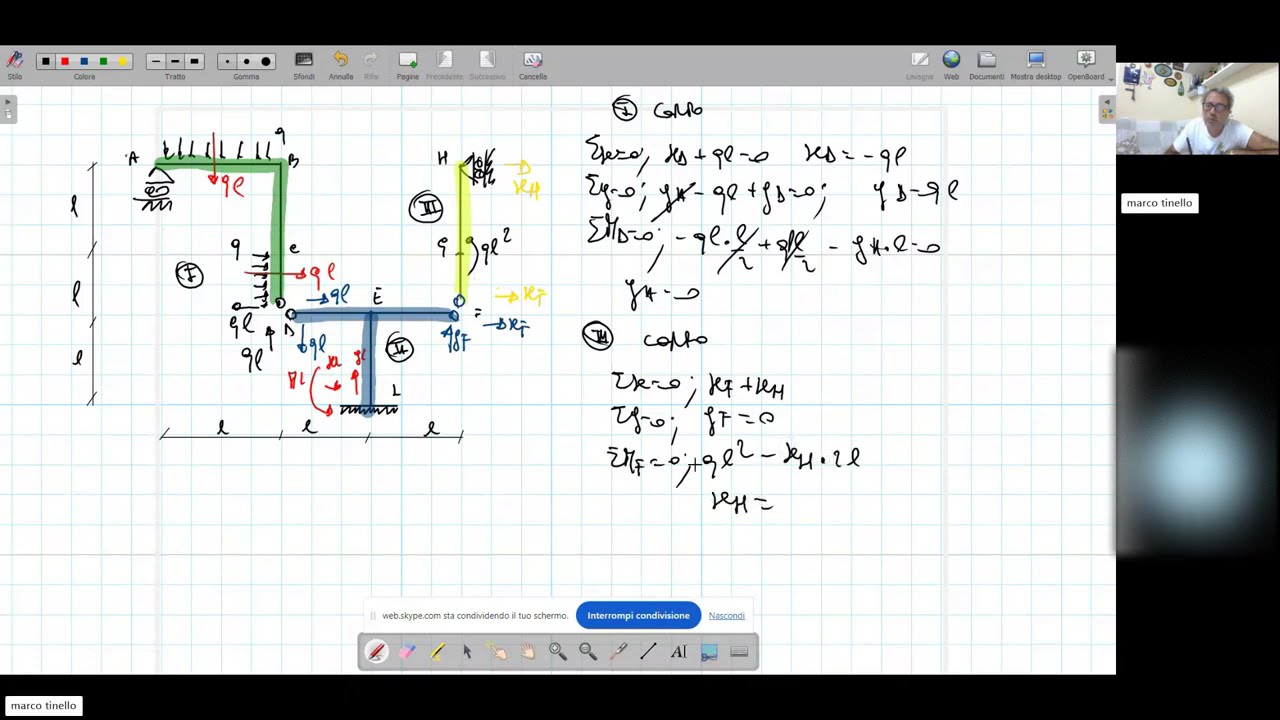 Stilo
Colore
Tratto
Gomma
Sfondi
Annulla
Rifai
Pagine
Precedente
Successivo
Cancella
Lavagna
Web
Documenti
Mostra desktop
OpenBoard
marco tinello
A
q
B
H
ql
xH
l
III
q
ql²
q
C
I
ql
l
xF
ql
E
ql
D
xF
ql
ql
yF
II
l
L
l
l
l
I corpo
Σx=0; xD+ql=0 xD=-ql
Σy=0; yA-ql+yD=0; yD=ql
ΣMD=0; -ql·l/2+ql l/2-yA·l=0
yA=0
III corpo
Σx=0; xF+xH
Σy=0; yF=0
ΣMF=0; +ql²-xH·2l
xH=
web.skype.com sta condividendo il tuo schermo.
Interrompi condivisione
Nascondi
marco tinello